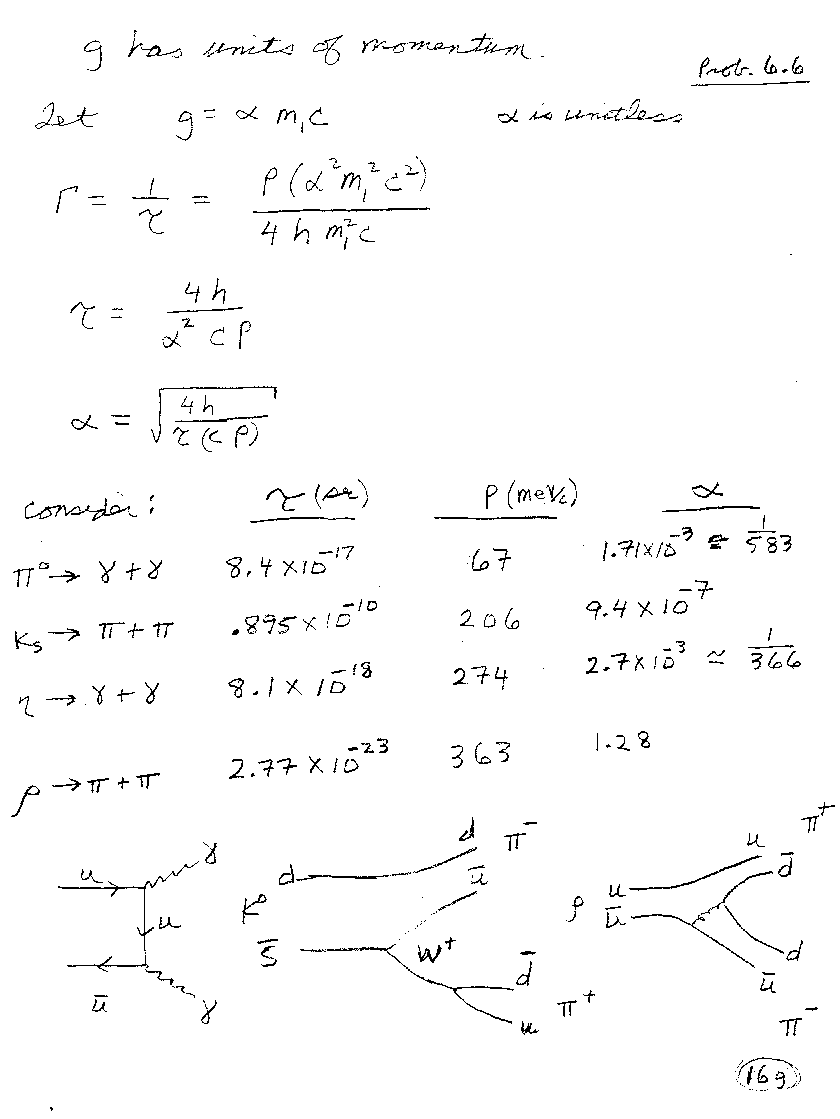 g has units of momentum.
Prob. 6.6
Let g = α m₁c α is unitless
Γ = 1/τ = P(α²m₁²c²) / 4 h m₁²c
τ = 4h / α² c P
α = √(4h / τ(c P))
Consider: τ (sec) P (meV/c) α
π° → γ + γ 8.4 × 10⁻¹⁷ 67 1.71×10⁻³ ≃ 1/583
Ks → π + π .895 × 10⁻¹⁰ 206 9.4 × 10⁻⁷
η → γ + γ 8.1 × 10⁻¹⁸ 274 2.7×10⁻³ ≃ 1/366
ρ → π + π 2.77 × 10⁻²³ 363 1.28
u γ
u
ū γ
K° d d π⁻
ū
s̄ W⁺ d̄
u π⁺
ρ u u π⁺
ū d̄
d
ū π⁻
169